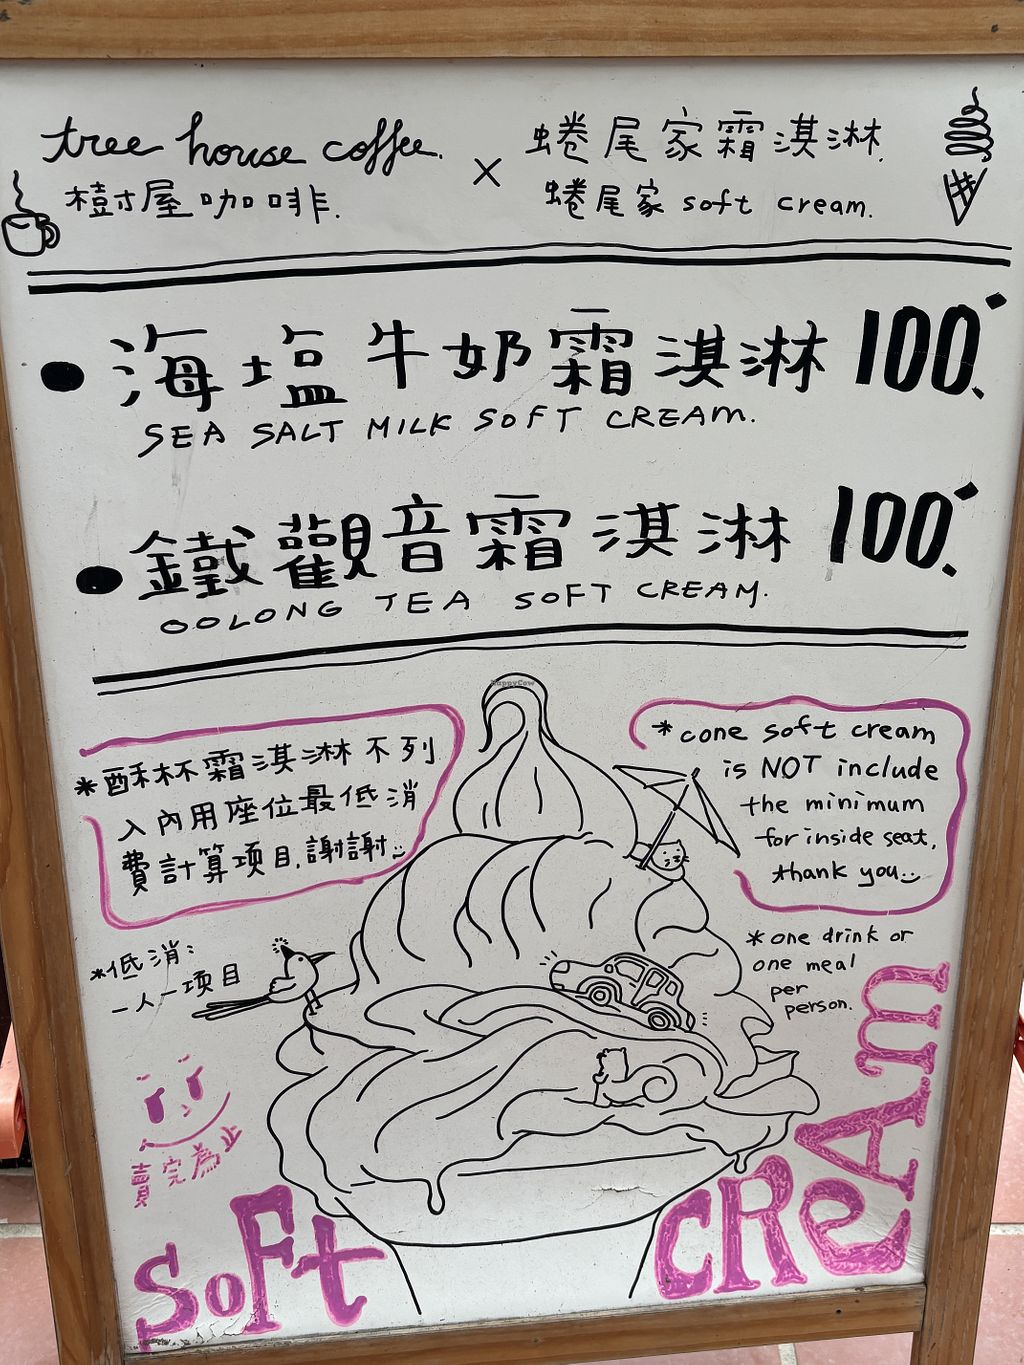 tree house coffee.
樹屋咖啡.
×
蜷尾家霜淇淋.
蜷尾家 soft cream.
• 海塩牛奶霜淇淋 100.
SEA SALT MILK SOFT CREAM.
• 鐵觀音霜淇淋 100.
OOLONG TEA SOFT CREAM.
*酥杯霜淇淋不列
入內用座位最低消
費計算项目.謝謝
*cone soft cream
is NOT include
the minimum
for inside seat,
thank you
*低消:
一人一項目
*one drink or
one meal
per
person.
賣完為止
SoFt
CReAm
HappyCow